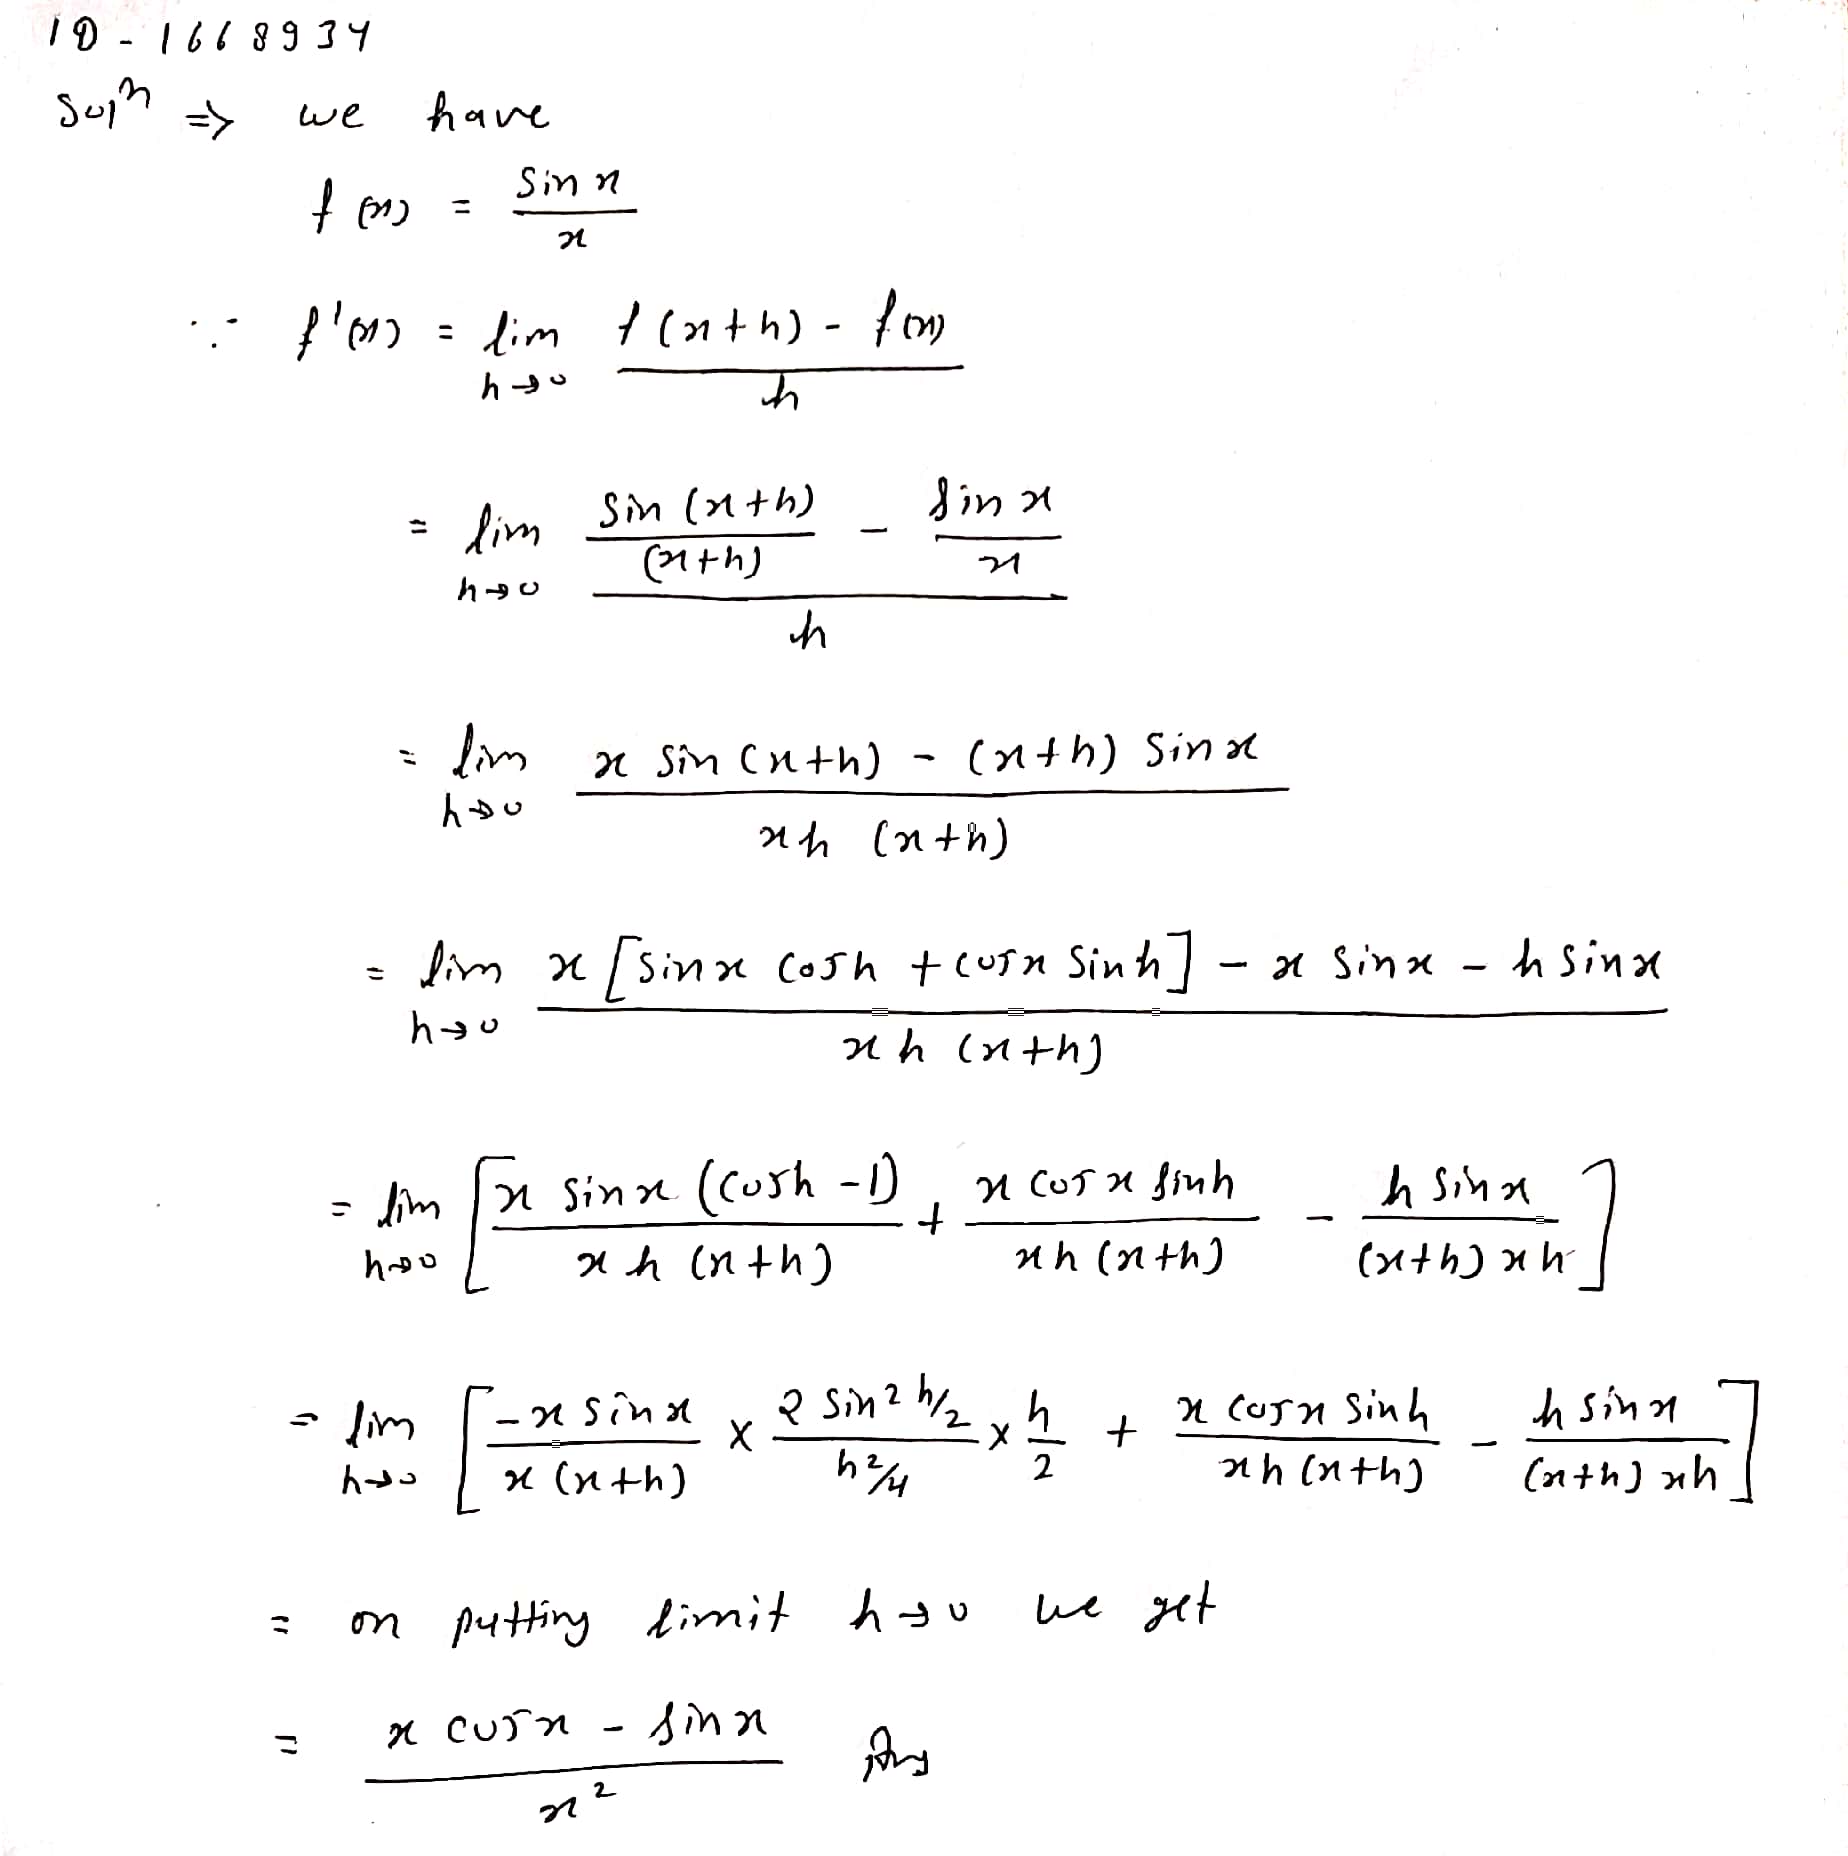 ID - 1668934
Solⁿ ⇒ we have
f(x) = sin x / x
∵ f'(x) = lim h→0 f(x+h) - f(x) / h
= lim h→0 [sin (x+h) / (x+h) - sin x / x] / h
= lim h→0 x sin (x+h) - (x+h) sin x / xh (x+h)
= lim h→0 x [sin x cos h + cos x sin h] - x sin x - h sin x / xh (x+h)
= lim h→0 [x sin x (cos h - 1) / xh (x+h) + x cos x sin h / xh (x+h) - h sin x / (x+h) xh]
= lim h→0 [-x sin x / x (x+h) × 2 sin² h/2 / h²/4 × h/2 + x cos x sin h / xh (x+h) - h sin x / (x+h) xh]
= on putting limit h→0 we get
= x cos x - sin x / x² Ans